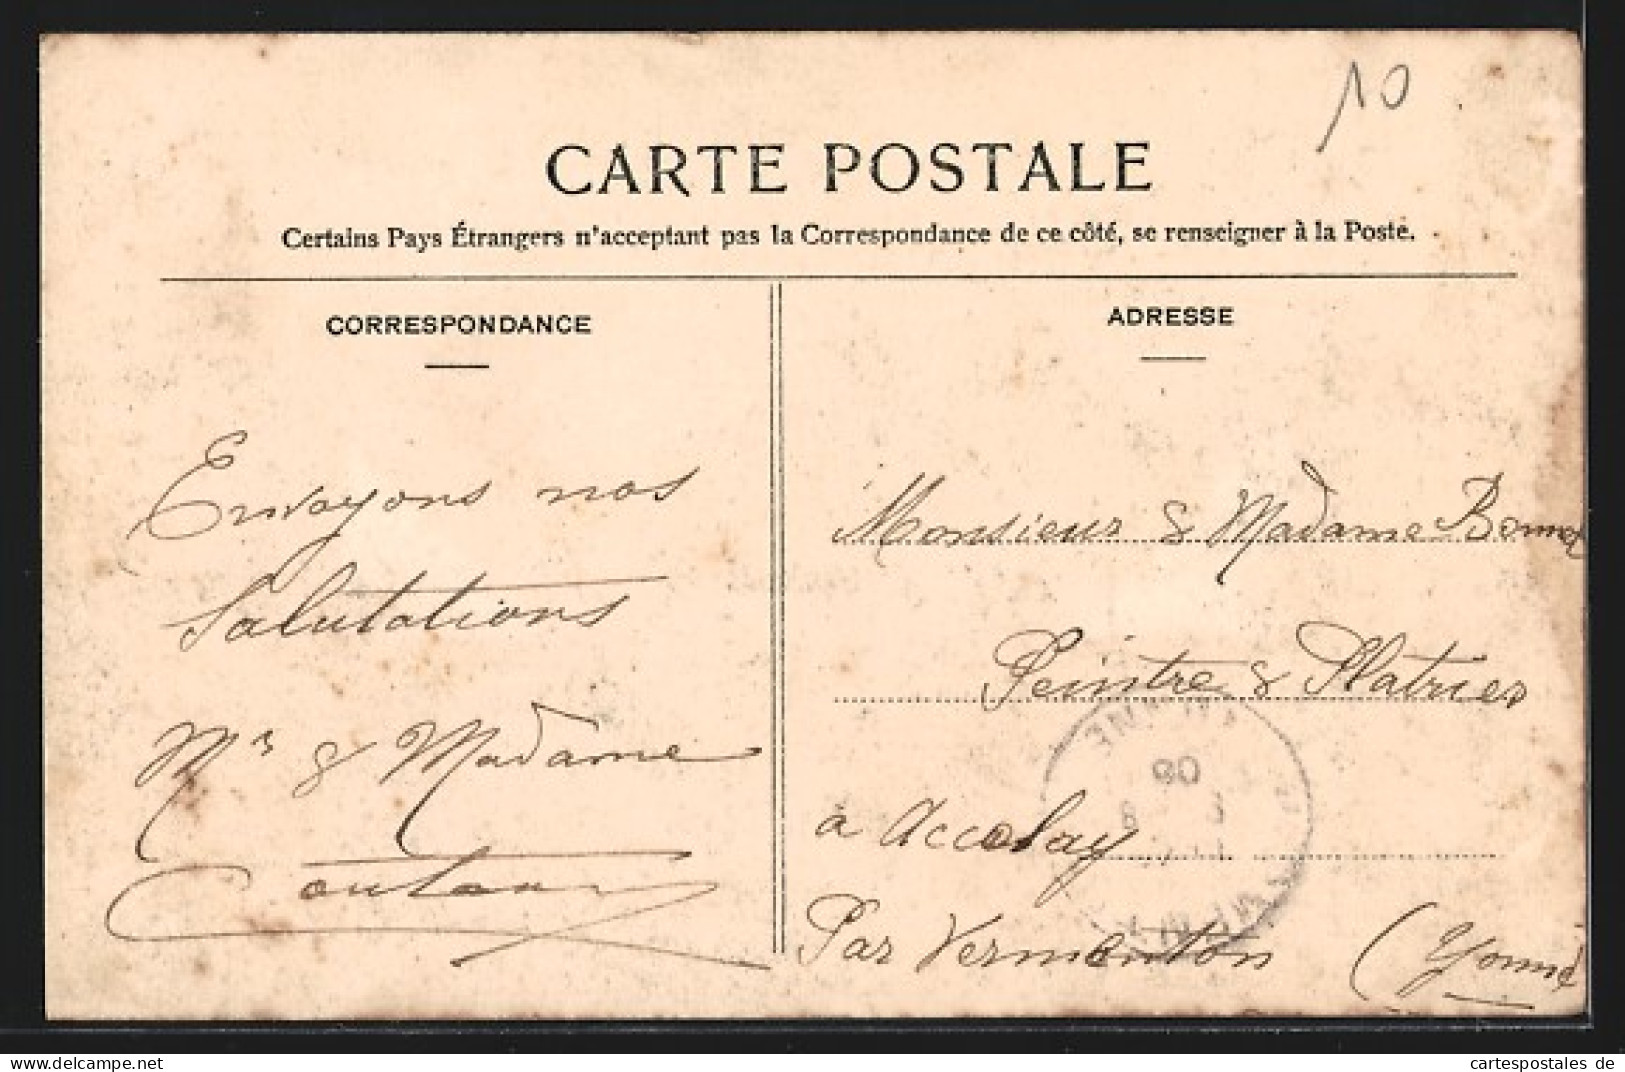 10
CARTE POSTALE
Certains Pays Étrangers n'acceptant pas la Correspondance de ce côté, se renseigner à la Poste.
CORRESPONDANCE
Envoyons nos
Salutations
Mr & Madame
ADRESSE
Monsieur & Madame Bonnet
Peintre & Platrier
à Accolay
Par Vermenton (Yonne
06
www.cartespostales.de
cartespostales de